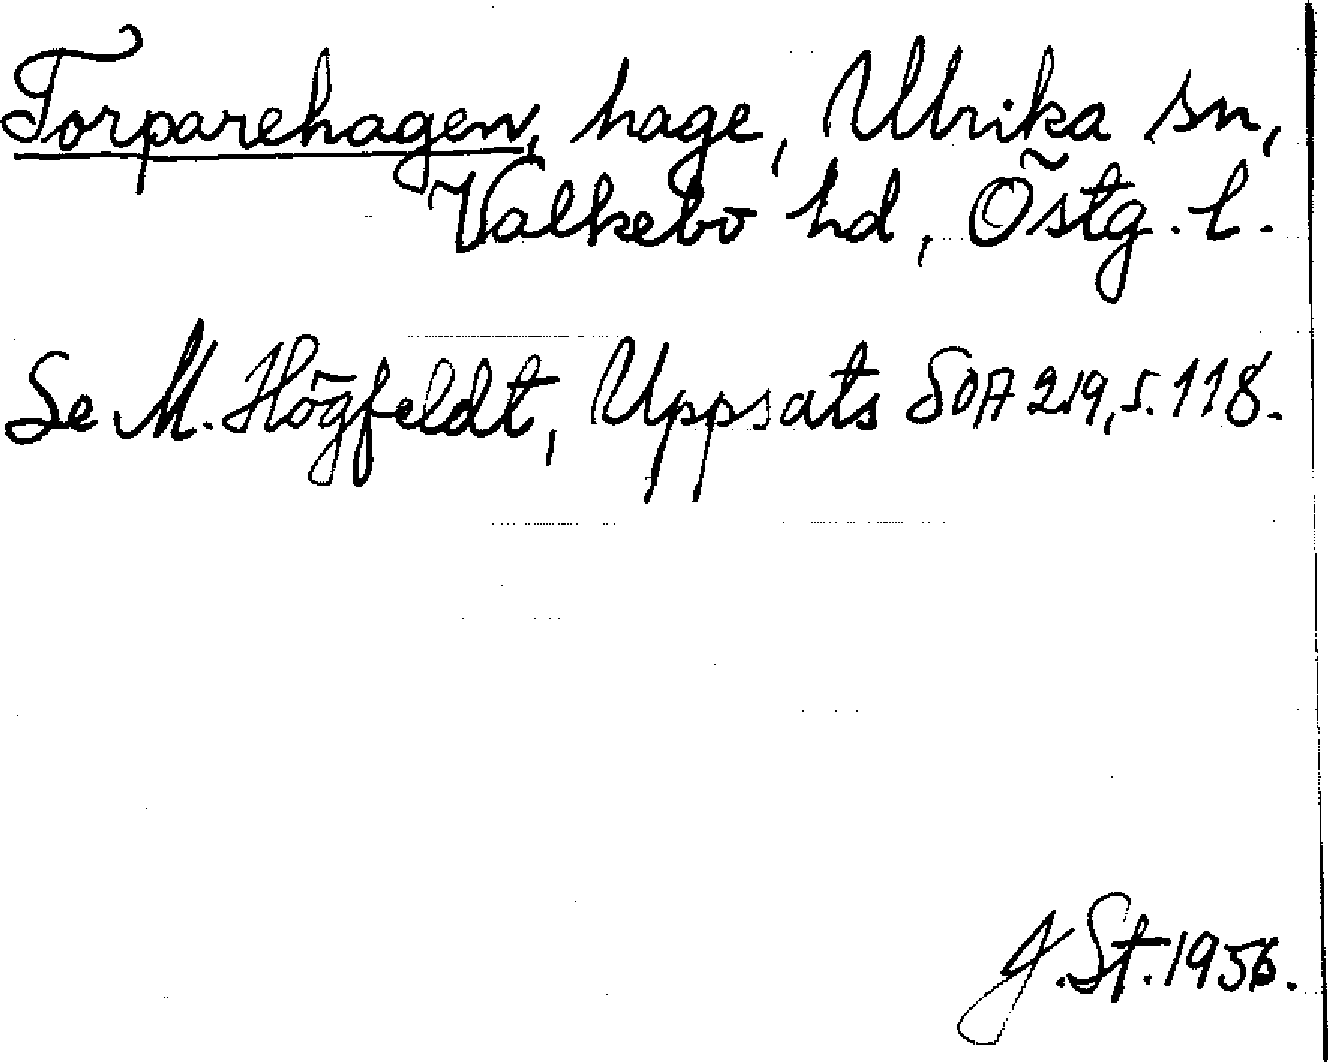 Torparehagen, hage, Ulrika sn,
Valkebo hd, Östg. l.
Se M. Högfeldt, Uppsats SOA 219, s. 118.
J. St. 1956.